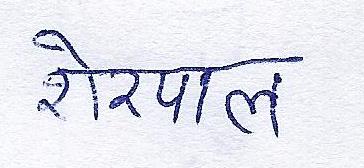 शेरपाल